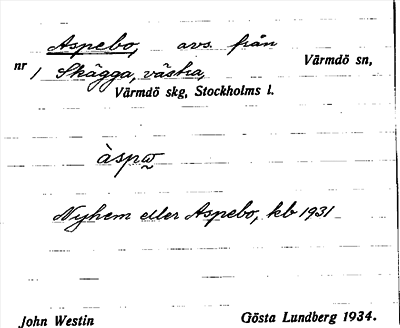 Aspebo, avs. från
Värmdö sn,
nr 1 Skägga, västra,
Värmdö skg, Stockholms l.
àspω̬
Nyhem eller Aspebo, kb 1931
John Westin Gösta Lundberg 1934.